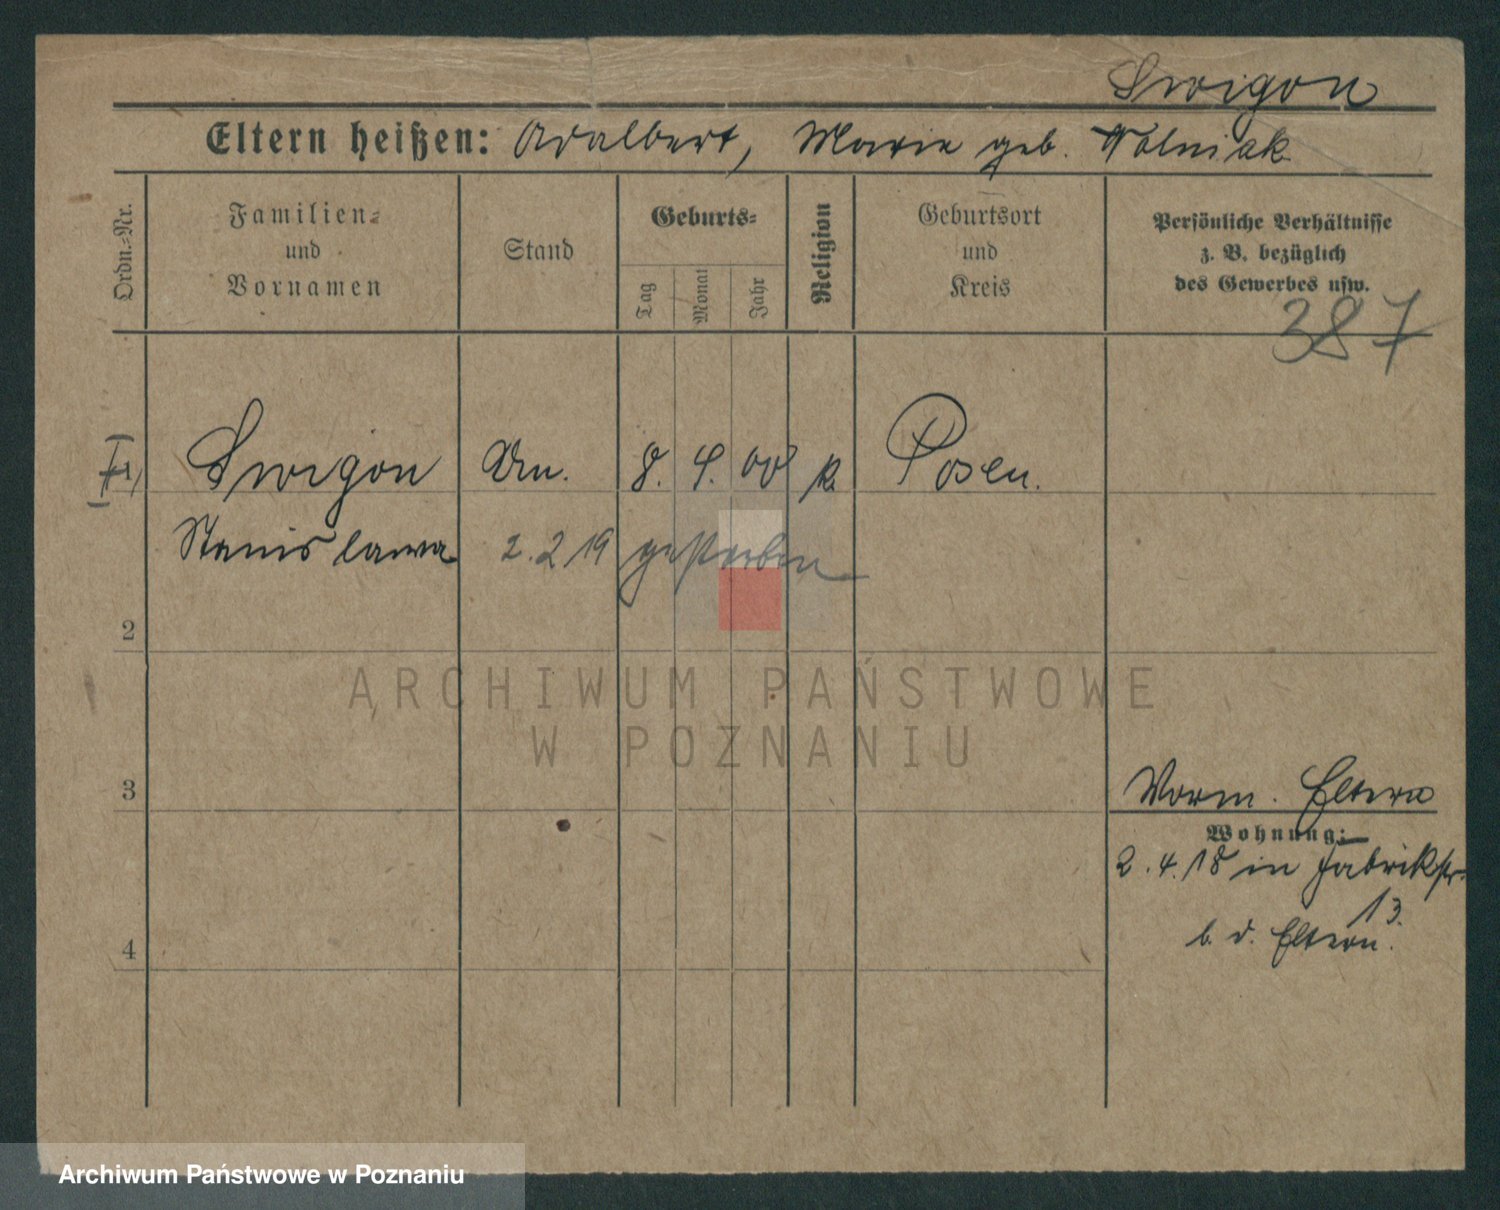 Swigon
Eltern heißen: Adalbert, Marie geb. Wolniak
Ordn.-Nr.
Familien- und Vornamen
Stand
Geburts-
Tag
Monat
Jahr
Religion
Geburtsort und Kreis
Persönliche Verhältnisse
z. B. bezüglich
des Gewerbes usw.
387
1
Swigon
8. 4. 00
k.
Posen.
Stanislawa
2. 2 19 gestorben
2
ARCHIWUM PAŃSTWOWE
W POZNANIU
3
Vorm. Eltern
Wohnung:
2. 4. 18 in Fabrikstr.
13.
b. d. Eltern.
4
Archiwum Państwowe w Poznaniu